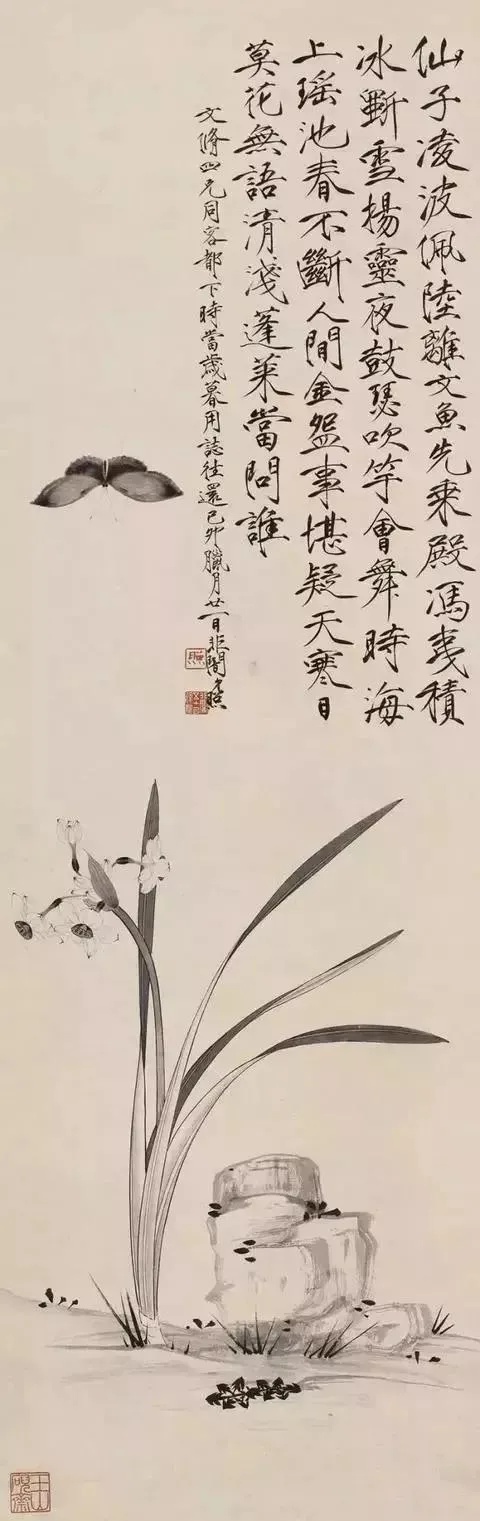 仙子凌波佩陸離文魚先乘殿馮夷積
冰斲雪揚靈夜鼓瑟吹竽會舞時海
上瑤池春不斷人間金盌事堪疑天寒日
莫花無語清淺蓬萊當問誰
文脩四兄同客都下時當歲暮用誌往還己卯臘月廿一日非闇照
玉山硯齋